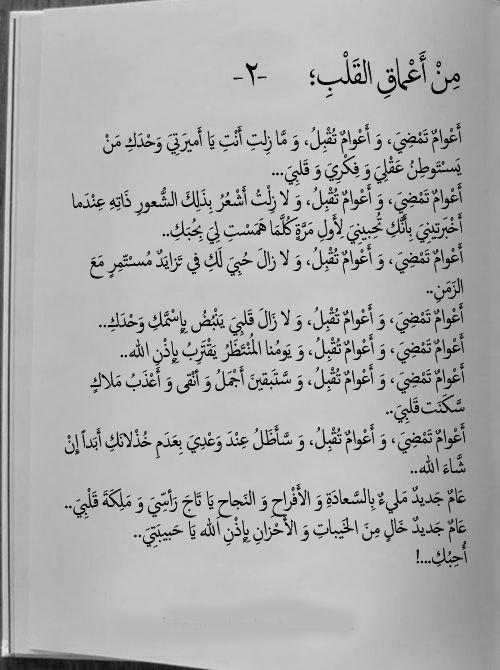 مِنْ أَعْماقِ القَلْبِ؛ -٢-
أَعْوامٌ تَمْضِيَ، وَ أَعْوامٌ تُقْبِلُ، وَ مَّا زِلتِ أَنْتِ يَا أَميرَتِيَ وَحْدَكِ مَنْ
يَسْتَوطِنُ عَقْلِيَ وَ فِكْرِيَ وَ قَلبِيَ...
أَعْوامٌ تَمْضِيَ، وَ أَعْوامٌ تُقْبِلُ، وَ لا زِلْتُ أَشْعُرُ بِذَلِكَ الشُّعورِ ذَاتِهِ عِنْدَما
أَخْبَرتِينِيَ بِأَنَّكِ تُحِبينِيَ لِأَولِ مَرَّةٍ كُلَّمَا هَمَسْتِ لِيَ بِحُبَكِ..
أَعْوامٌ تَمْضِيَ، وَ أَعْوامٌ تُقْبِلُ، وَ لا زالَ حُبِيَ لَكِ فِي تَزايَدٌ مُسْتَمِرٍ مَعَ
الزَمَنِ..
أَعْوامٌ تَمْضِيَ، وَ أَعْوامٌ تُقْبِلُ، وَ لا زَالَ قَلبِيَ يَنْبُضُ بِإِسْمَكِ وَحْدَكِ..
أَعْوامٌ تَمْضِيَ، وَ أَعْوامٌ تُقْبِلُ، وَ يَومُنا المُنْتَظَرُ يَقْتَرِبُ بِإِذْنِ الله..
أَعْوامٌ تَمْضِيَ، وَ أَعْوامٌ تُقْبِلُ، وَ سَتَبقينَ أَجْمَلُ وَ أَنْقى وَ أَعْذَبُ مَلاكٍ
سَّكَنَت قَلبِيَ..
أَعْوامٌ تَمْضِيَ، وَ أَعْوامٌ تُقْبِلُ، وَ سَّأَظَلُ عِنْدَ وَعْدِيَ بِعَدَمِ خُذْلانَكِ أَبَداً إِنْ
شَّاءَ الله..
عَامٌ جَديدٌ مَليءٌ بِالسَّعادَةِ وَ الأَفْراحِ وَ النَجاحِ يَا تَاجَ رَأسّيَ وَ مَلِكَةَ قَلْبِيَ..
عَامٌ جَديدٌ خَالٍ مِنَ الخَيباتِ وَ الأَحْزانِ بِإِذْنِ الله يَا حَبيبَتِيَ..
أُحِبُكِ...!